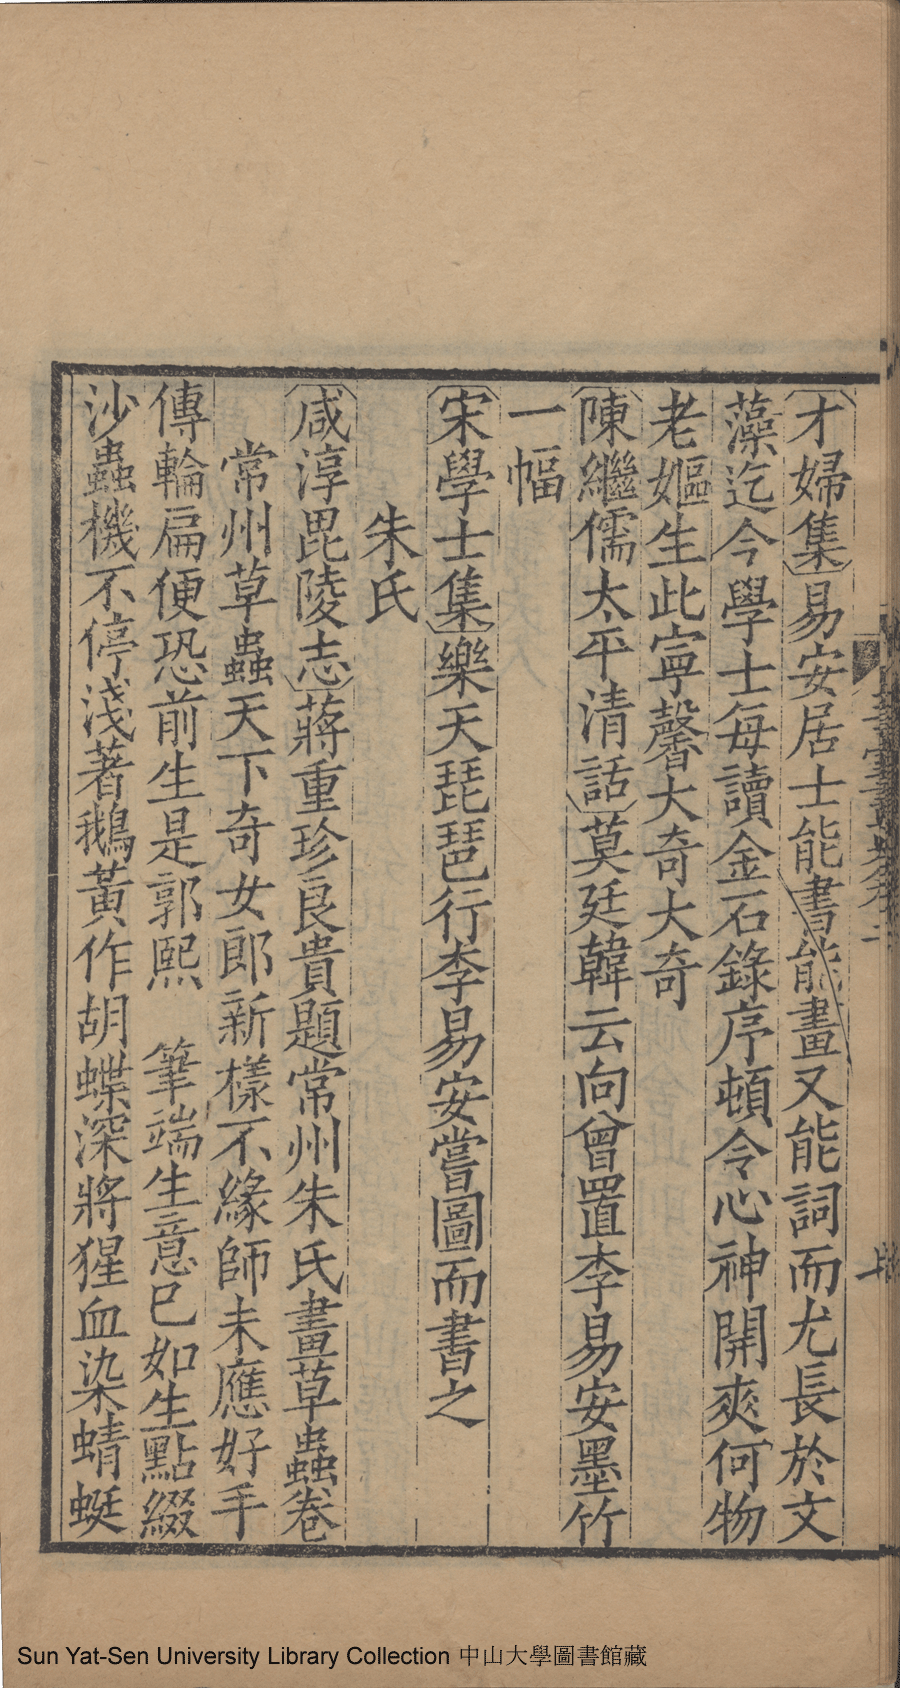 〔才婦集〕易安居士能書能畫又能詞而尤長於文
藻迄今學士每讀金石錄序頓令心神開爽何物
老嫗生此寧馨大奇大奇
〔陳繼儒太平清話〕莫廷韓云向曾置李易安墨竹
一幅
〔宋學士集〕樂天琵琶行李易安嘗圖而書之
朱氏
〔咸淳毘陵志〕蔣重珍良貴題常州朱氏畫草蟲卷
常州草蟲天下奇女郎新樣不緣師未應好手
傳輪扁便恐前生是郭熙　筆端生意已如生點綴
沙蟲機不停淺著鵝黃作胡蝶深將猩血染蜻蜓
Sun Yat-Sen University Library Collection 中山大學圖書館藏